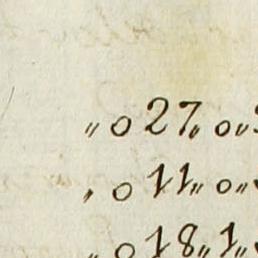 〃 0 27〃 0〃
〃 0 11〃 0〃
〃 0 18〃 1〃